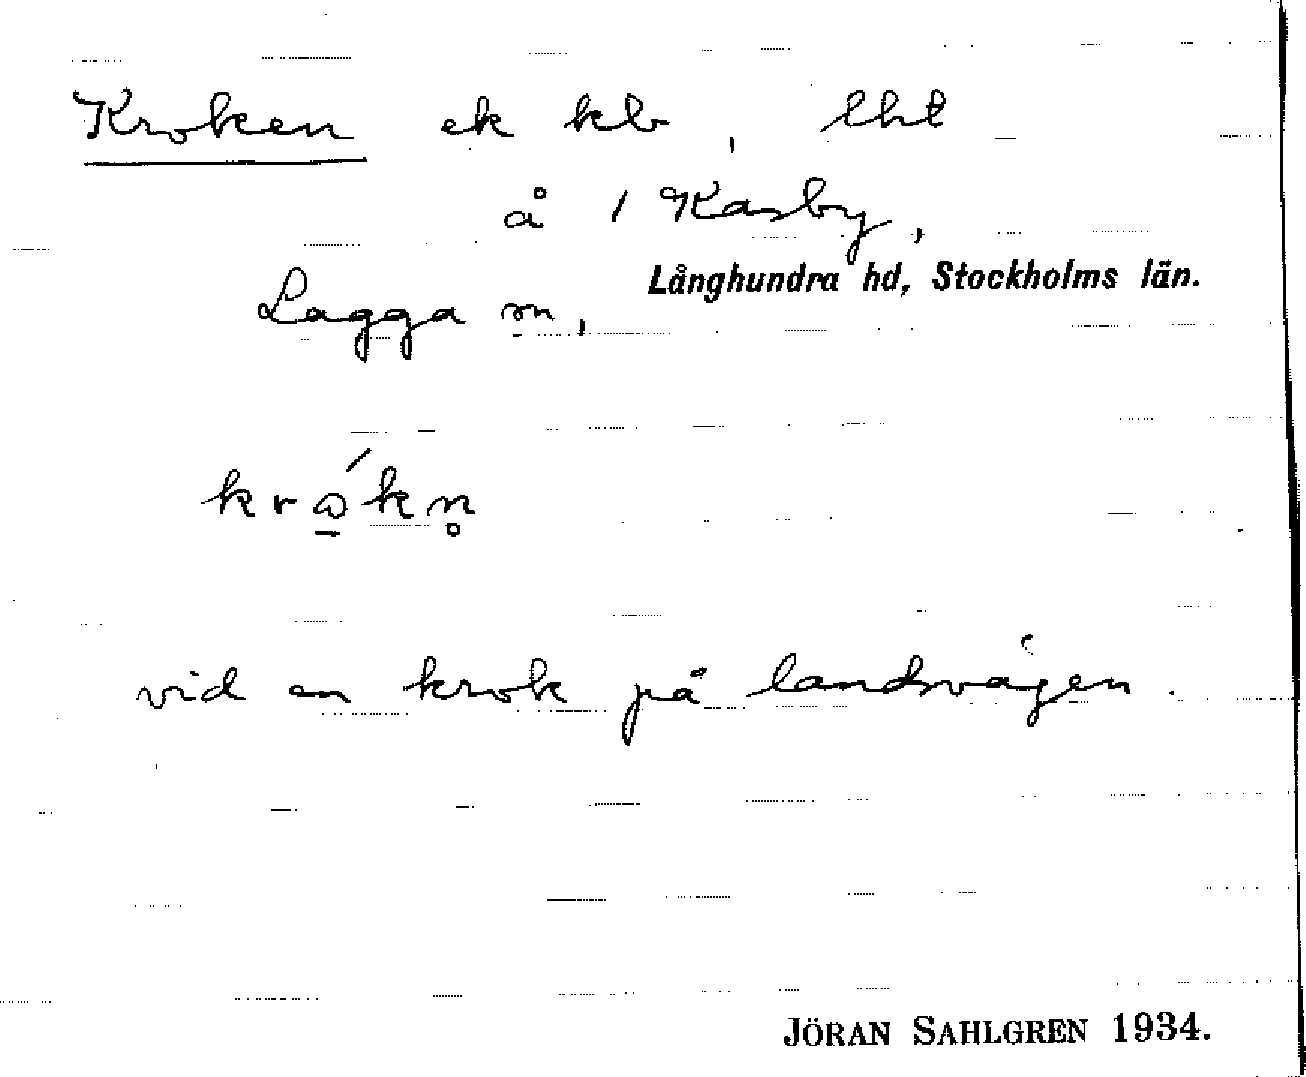 Kroken ek kb, lht
å 1 Kasby,
Långhundra hd, Stockholms län.
Lagga sn,
krókn̥
vid en krok på landsvägen.
JÖRAN SAHLGREN 1934.